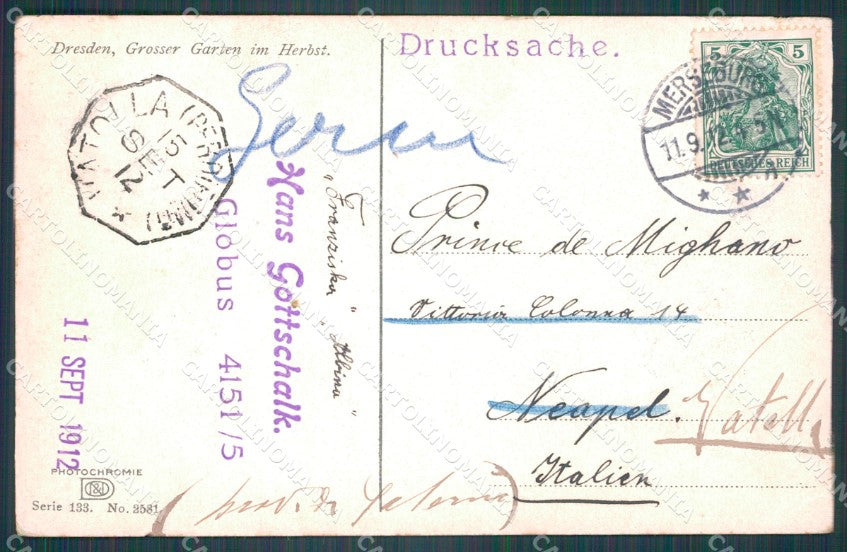 Dresden, Grosser Garten im Herbst.
Drucksache.
5 5
DEUTSCHES REICH
MERSEBURG
11.9.12
VATOLLA
15 SET 12
Hans Gottschalk.
Globus 4151/5
„Franziska" „Albina"
11 SEPT 1912
Prince de Mighano
Vittoria Colonna 14
Neapel.
Italien
PHOTOCHROMIE
Serie 133. No. 2581
CARTOLINOMANIA